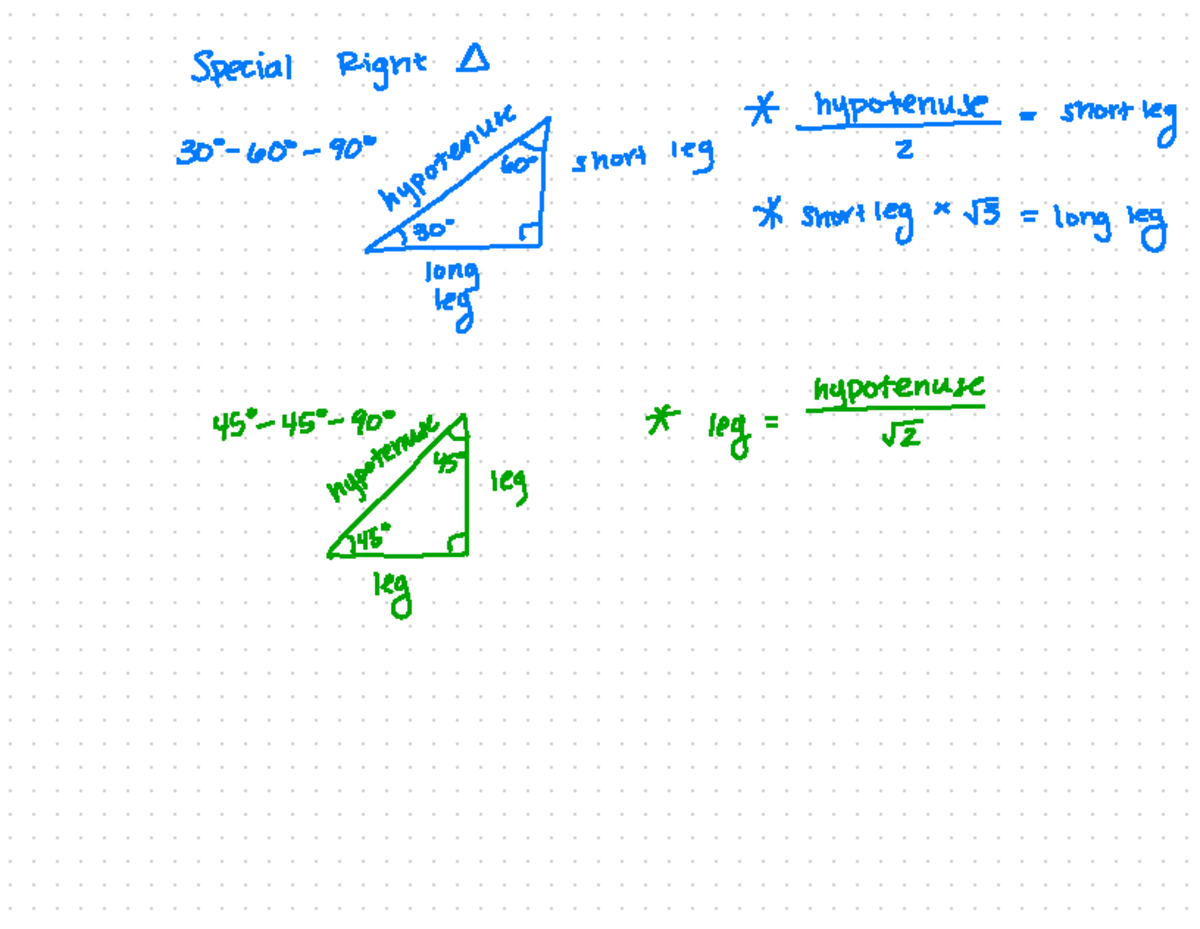 Special Right Δ
30°-60°-90°
hypotenuse
60°
30°
short leg
long
leg
* hypotenuse / 2 = short leg
* short leg × √3 = long leg
45°-45°-90°
hypotenuse
45°
45°
leg
leg
* leg = hypotenuse / √2